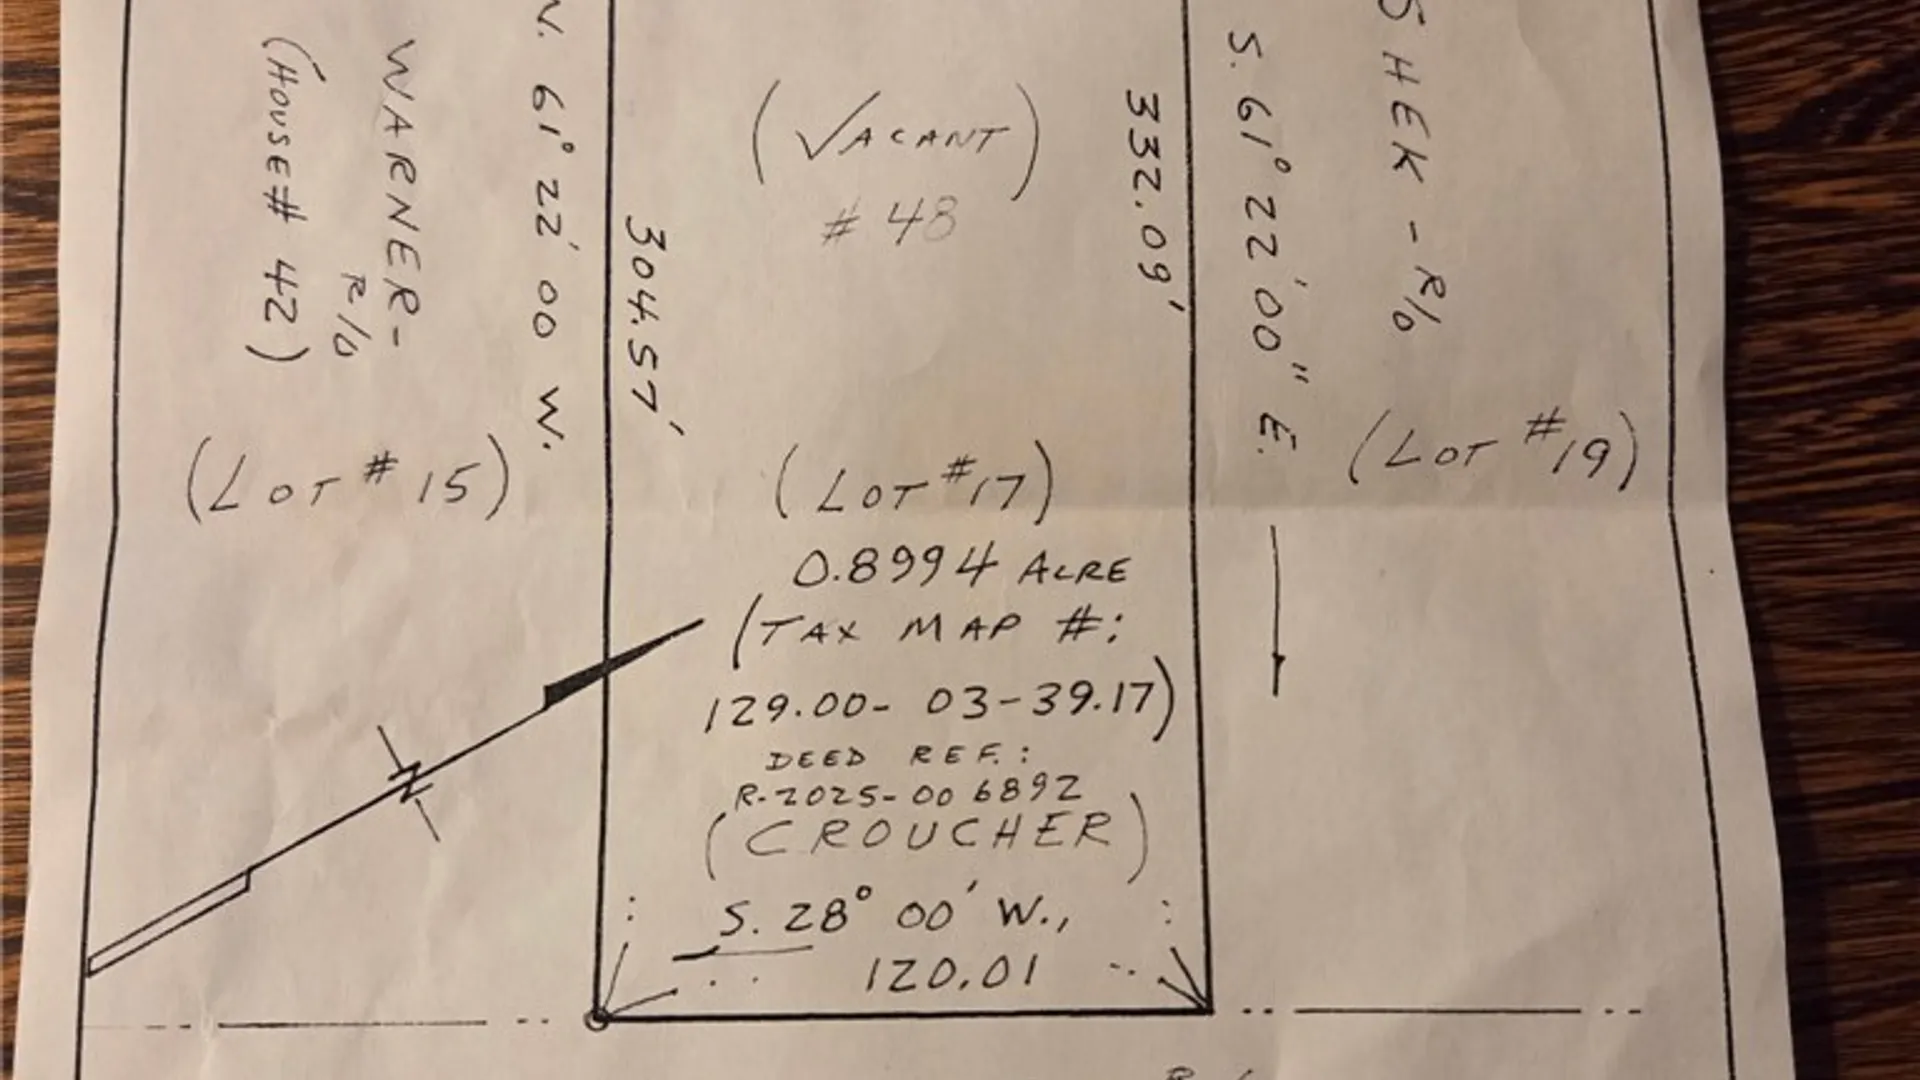 WARNER-
R/O
(HOUSE # 42)
(LOT # 15)
N. 61° 22' 00 W.
304.57'
(VACANT)
# 48
332.09'
S. 61° 22' 00" E.
SHEK - R/O
(LOT #19)
(LOT #17)
0.8994 ACRE
(TAX MAP #:
129.00- 03-39.17)
DEED REF.:
R-2025-006892
(CROUCHER)
S. 28° 00' W.,
120.01